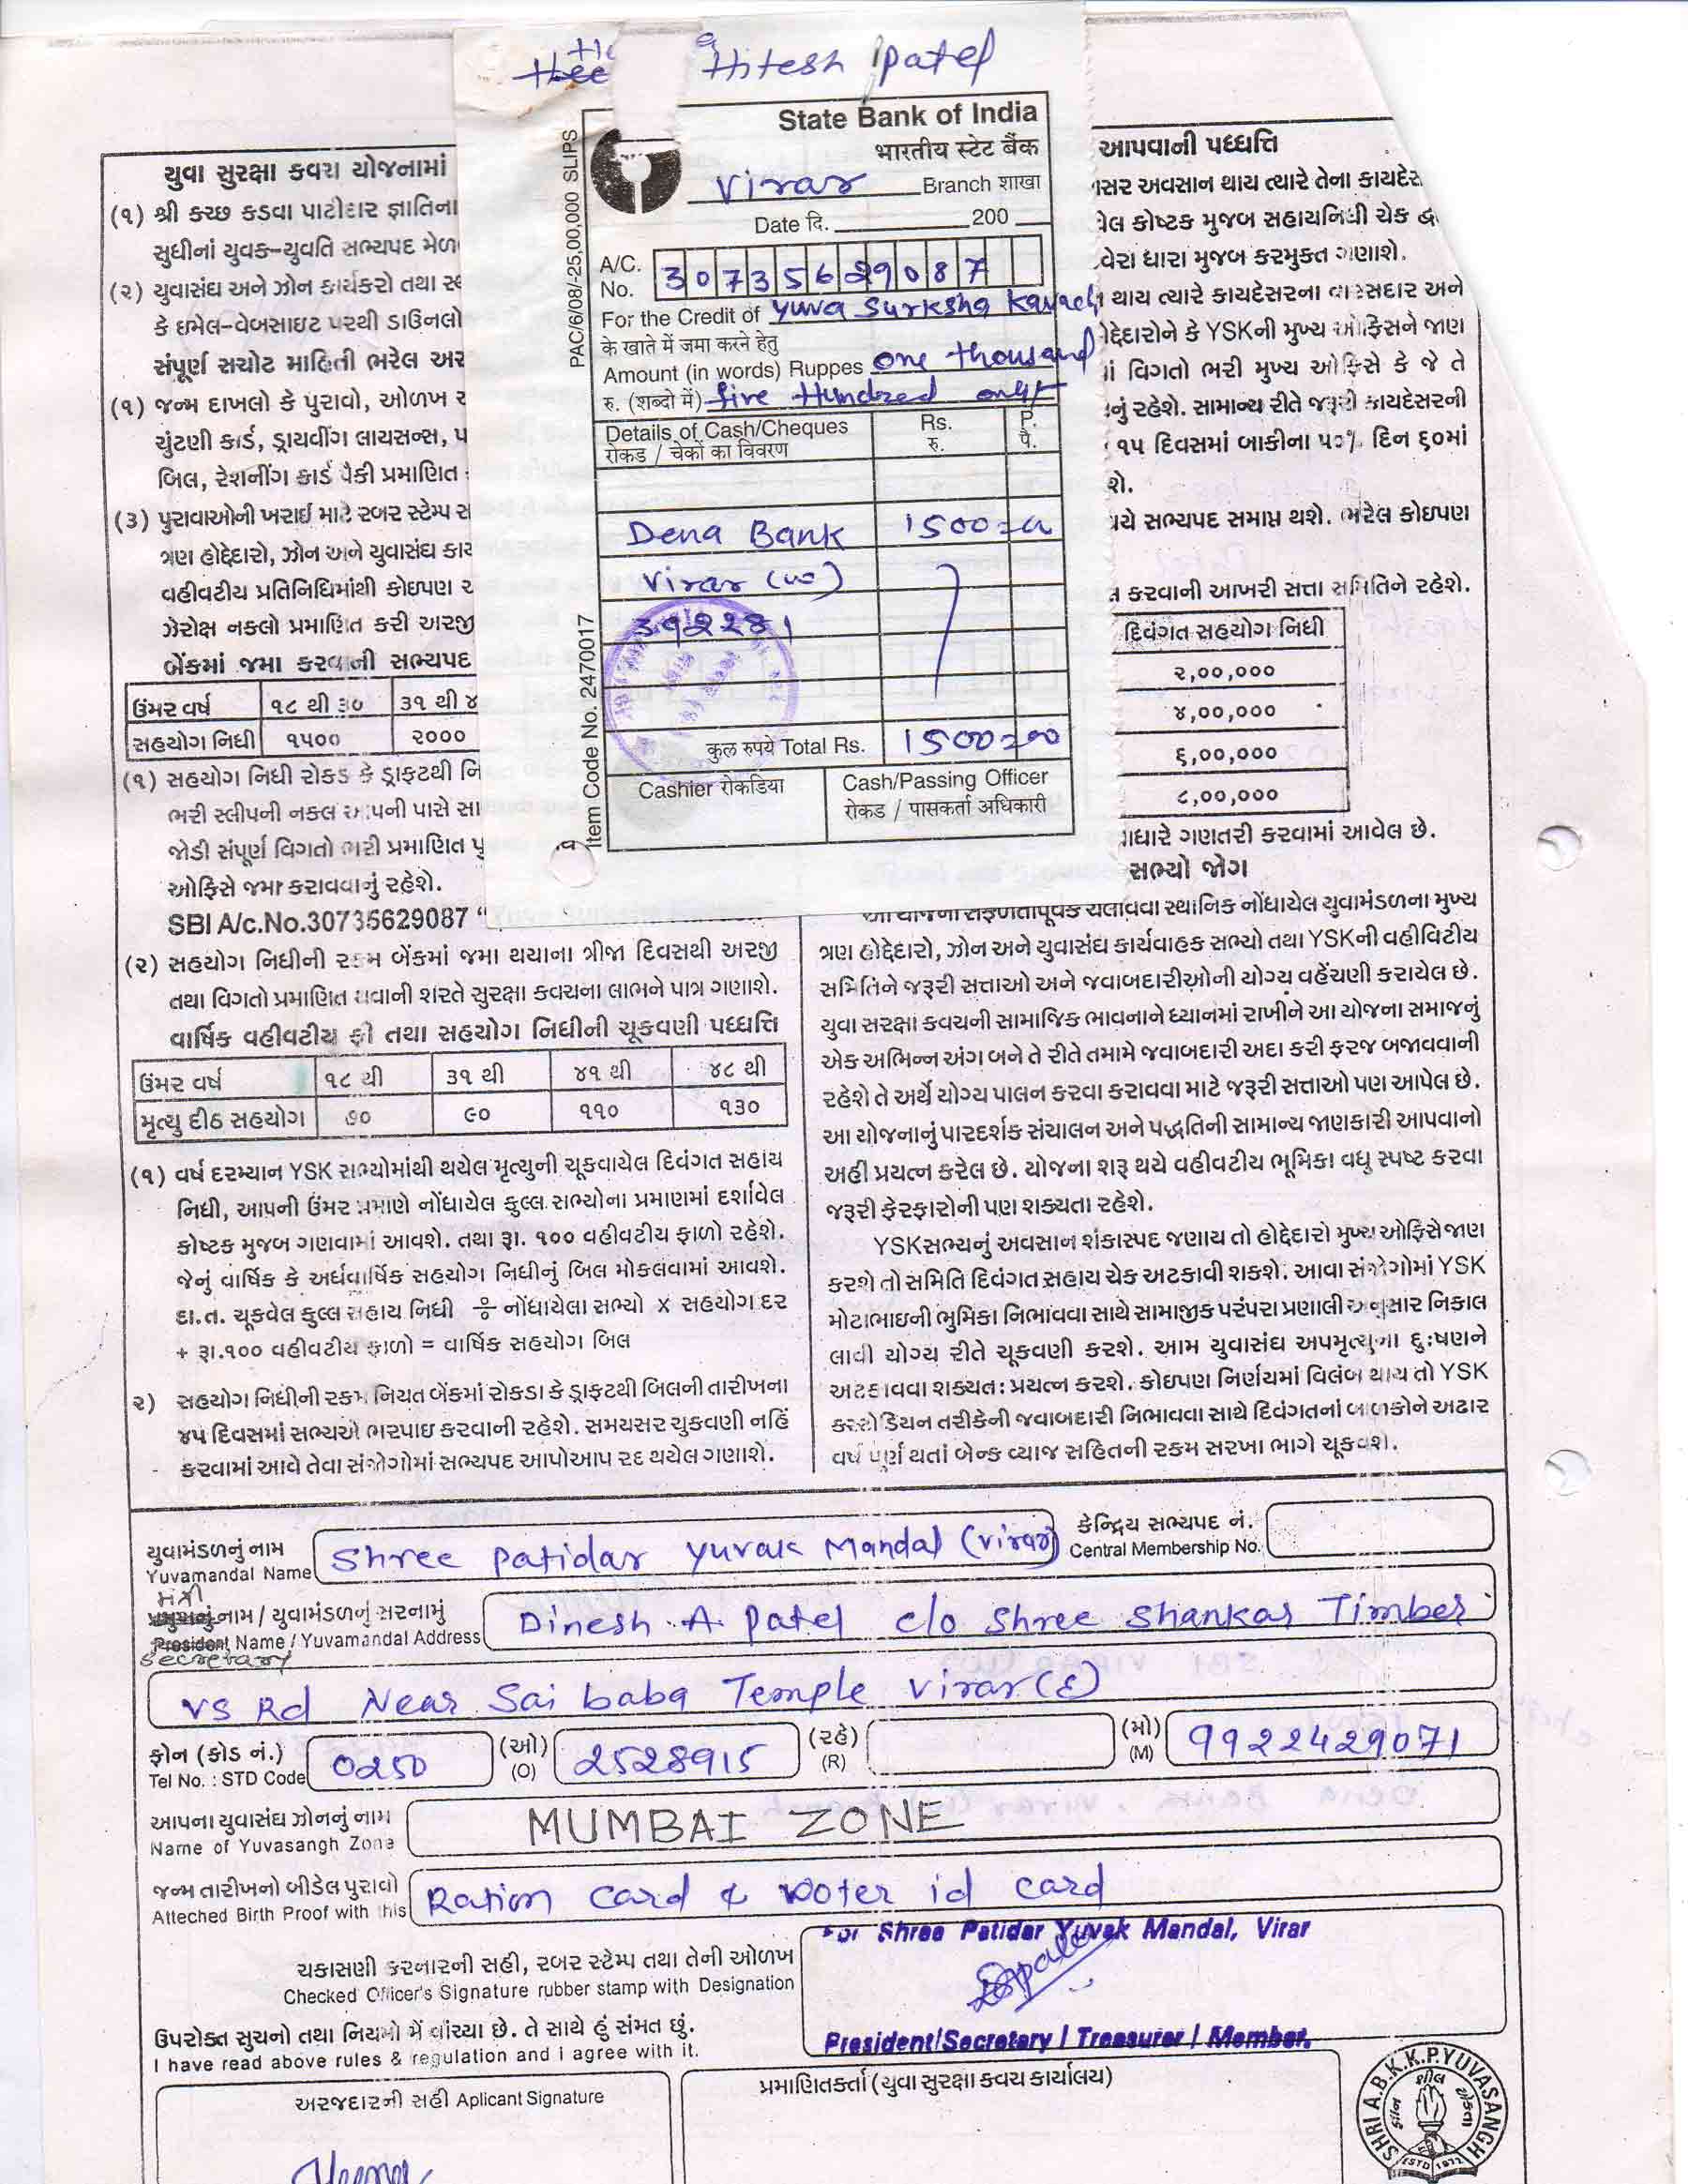 Hitesh Patel
State Bank of India
भारतीय स्टेट बैंक
Virar Branch शाखा
Date दि. 200
PAC/6/08/-25,00,000 SLIPS
Item Code No. 2470017
A/C. No. 30735629087
For the Credit of Yuva Surksha Kavach
के खाते में जमा करने हेतु
Amount (in words) Ruppes one thousand
रु. (शब्दो में) five Hundred only
Details of Cash/Cheques Rs. P.
रोकड / चेकों का विवरण रु. पै.
Dena Bank 1500=00
Virar (w)
कुल रुपये Total Rs. 1500=00
Cashier रोकडिया
Cash/Passing Officer
रोकड / पासकर्ता अधिकारी
યુવા સુરક્ષા કવચ યોજનામાં
(૧) શ્રી કચ્છ કડવા પાટીદાર જ્ઞાતિના
સુધીનાં યુવક-યુવતિ સભ્યપદ
(૨) યુવાસંઘ અને ઝોન કાર્યકરો તથા
કે ઇમેલ-વેબસાઇટ પરથી
સંપૂર્ણ સચોટ માહિતી ભરેલ
(૧) જન્મ દાખલો કે પુરાવો, ઓળખ
ચુંટણી કાર્ડ, ડ્રાયવીંગ લાયસન્સ,
બિલ, રેશનીંગ કાર્ડ પૈકી પ્રમાણિત
(૩) પુરાવાઓની ખરાઈ માટે રબર સ્ટેમ્પ
ત્રણ હોદ્દેદારો, ઝોન અને યુવાસંઘ
વહીવટીય પ્રતિનિધિમાંથી કોઇપણ
ઝેરોક્ષ નકલો પ્રમાણિત કરી અરજી
બેંકમાં જમા કરવાની સભ્યપદ
ઉંમર વર્ષ ૧૮ થી ૩૦ ૩૧ થી
સહયોગ નિધી ૧૫૦૦ ૨૦૦૦
(૧) સહયોગ નિધી રોકડ કે ડ્રાફટથી
ભરી સ્લીપની નકલ આપની પાસે
જોડી સંપૂર્ણ વિગતો ભરી પ્રમાણિત
ઓફિસે જમા કરાવવાનું રહેશે.
SBI A/c.No.30735629087 "
(૨) સહયોગ નિધીની રકમ બેંકમાં જમા થયાના ત્રીજા દિવસથી અરજી
તથા વિગતો પ્રમાણિત થવાની શરતે સુરક્ષા કવચના લાભને પાત્ર ગણાશે.
વાર્ષિક વહીવટીય ફી તથા સહયોગ નિધીની ચૂકવણી પધ્ધત્તિ
ઉંમર વર્ષ ૧૮ થી ૩૧ થી ૪૧ થી ૪૮ થી
મૃત્યુ દીઠ સહયોગ ૭૦ ૯૦ ૧૧૦ ૧૩૦
(૧) વર્ષ દરમ્યાન YSK સભ્યોમાંથી થયેલ મૃત્યુની ચૂકવાયેલ દિવંગત સહાય
નિધી, આપની ઉંમર પ્રમાણે નોંધાયેલ કુલ્લ સભ્યોના પ્રમાણમાં દર્શાવેલ
કોષ્ટક મુજબ ગણવામાં આવશે. તથા રૂા. ૧૦૦ વહીવટીય ફાળો રહેશે.
જેનું વાર્ષિક કે અર્ધવાર્ષિક સહયોગ નિધીનું બિલ મોકલવામાં આવશે.
દા.ત. ચૂકવેલ કુલ્લ સહાય નિધી ÷ નોંધાયેલા સભ્યો x સહયોગ દર
+ રૂા.૧૦૦ વહીવટીય ફાળો = વાર્ષિક સહયોગ બિલ
૨) સહયોગ નિધીની રકમ નિયત બેંકમાં રોકડા કે ડ્રાફટથી બિલની તારીખના
૪૫ દિવસમાં સભ્યએ ભરપાઇ કરવાની રહેશે. સમયસર ચુકવણી નહિં
કરવામાં આવે તેવા સંજોગોમાં સભ્યપદ આપોઆપ રદ થયેલ ગણાશે.
આપવાની પધ્ધત્તિ
અવસાન થાય ત્યારે તેના
કોષ્ટક મુજબ સહાયનિધી ચેક
ધારા મુજબ કરમુક્ત ગણાશે.
થાય ત્યારે કાયદેસરના વારસદાર અને
કે YSKની મુખ્ય ઓફિસને જાણ
વિગતો ભરી મુખ્ય ઓફિસે કે જે તે
રહેશે. સામાન્ય રીતે જરૂરી કાયદેસરની
૧૫ દિવસમાં બાકીના ૫૦% દિન ૬૦માં
સભ્યપદ સમાપ્ત થશે. ભરેલ કોઇપણ
કરવાની આખરી સત્તા સમિતિને રહેશે.
દિવંગત સહયોગ નિધી
૨,૦૦,૦૦૦
૪,૦૦,૦૦૦
૬,૦૦,૦૦૦
૮,૦૦,૦૦૦
ગણતરી કરવામાં આવેલ છે.
સભ્યો જોગ
આ યોજના સફળતાપૂર્વક ચલાવવા સ્થાનિક નોંધાયેલ યુવામંડળના મુખ્ય
ત્રણ હોદ્દેદારો, ઝોન અને યુવાસંઘ કાર્યવાહક સભ્યો તથા YSKની વહીવિટીય
સમિતિને જરૂરી સત્તાઓ અને જવાબદારીઓની યોગ્ય વહેંચણી કરાયેલ છે.
યુવા સરક્ષા કવચની સામાજિક ભાવનાને ધ્યાનમાં રાખીને આ યોજના સમાજનું
એક અભિન્ન અંગ બને તે રીતે તમામે જવાબદારી અદા કરી ફરજ બજાવવાની
રહેશે તે અર્થે યોગ્ય પાલન કરવા કરાવવા માટે જરૂરી સત્તાઓ પણ આપેલ છે.
આ યોજનાનું પારદર્શક સંચાલન અને પદ્ધતિની સામાન્ય જાણકારી આપવાનો
અહી પ્રયત્ન કરેલ છે. યોજના શરૂ થયે વહીવટીય ભૂમિકા વધુ સ્પષ્ટ કરવા
જરૂરી ફેરફારોની પણ શક્યતા રહેશે.
YSKસભ્યનું અવસાન શંકાસ્પદ જણાય તો હોદ્દેદારો મુખ્ય ઓફિસે જાણ
કરશે તો સમિતિ દિવંગત સહાય ચેક અટકાવી શકશે. આવા સંજોગોમાં YSK
મોટાભાઇની ભુમિકા નિભાવવા સાથે સામાજીક પરંપરા પ્રણાલી અનુસાર નિકાલ
લાવી યોગ્ય રીતે ચૂકવણી કરશે. આમ યુવાસંઘ અપમૃત્યુના દુઃષણને
અટકાવવા શક્યતઃ પ્રયત્ન કરશે. કોઇપણ નિર્ણયમાં વિલંબ થાય તો YSK
કસ્ટોડિયન તરીકેની જવાબદારી નિભાવવા સાથે દિવંગતનાં બાળકોને અઢાર
વર્ષ પૂર્ણ થતાં બેન્ક વ્યાજ સહિતની રકમ સરખા ભાગે ચૂકવશે.
યુવામંડળનું નામ
Yuvamandal Name Shree Patidar Yuvak Mandal (Virar)
કેન્દ્રિય સભ્યપદ નં.
Central Membership No.
મંત્રી
પ્રમુખનું નામ / યુવામંડળનું સરનામું
President Name / Yuvamandal Address Dinesh A. Patel c/o Shree Shankar Timber
Secretary
VS Rd Near Sai baba Temple Virar (E)
ફોન (કોડ નં.) (ઓ) (રહે) (મો)
Tel No. : STD Code 0250 (O) 2528915 (R) (M) 9922429071
આપના યુવાસંઘ ઝોનનું નામ
Name of Yuvasangh Zone MUMBAI ZONE
જન્મ તારીખનો બીડેલ પુરાવો
Atteched Birth Proof with this Ration Card & Voter id card
ચકાસણી કરનારની સહી, રબર સ્ટેમ્પ તથા તેની ઓળખ
Checked Officer's Signature rubber stamp with Designation
For Shree Patidar Yuvak Mandal, Virar
President/Secretary / Treasurer / Member.
ઉપરોક્ત સુચનો તથા નિયમો મેં વાંચ્યા છે. તે સાથે હું સંમત છું.
I have read above rules & regulation and i agree with it.
અરજદારની સહી Aplicant Signature
Heena
પ્રમાણિતકર્તા (યુવા સુરક્ષા કવચ કાર્યાલય)
SHRI A.B.K.K.P.YUVASANGH
ESTD 1972